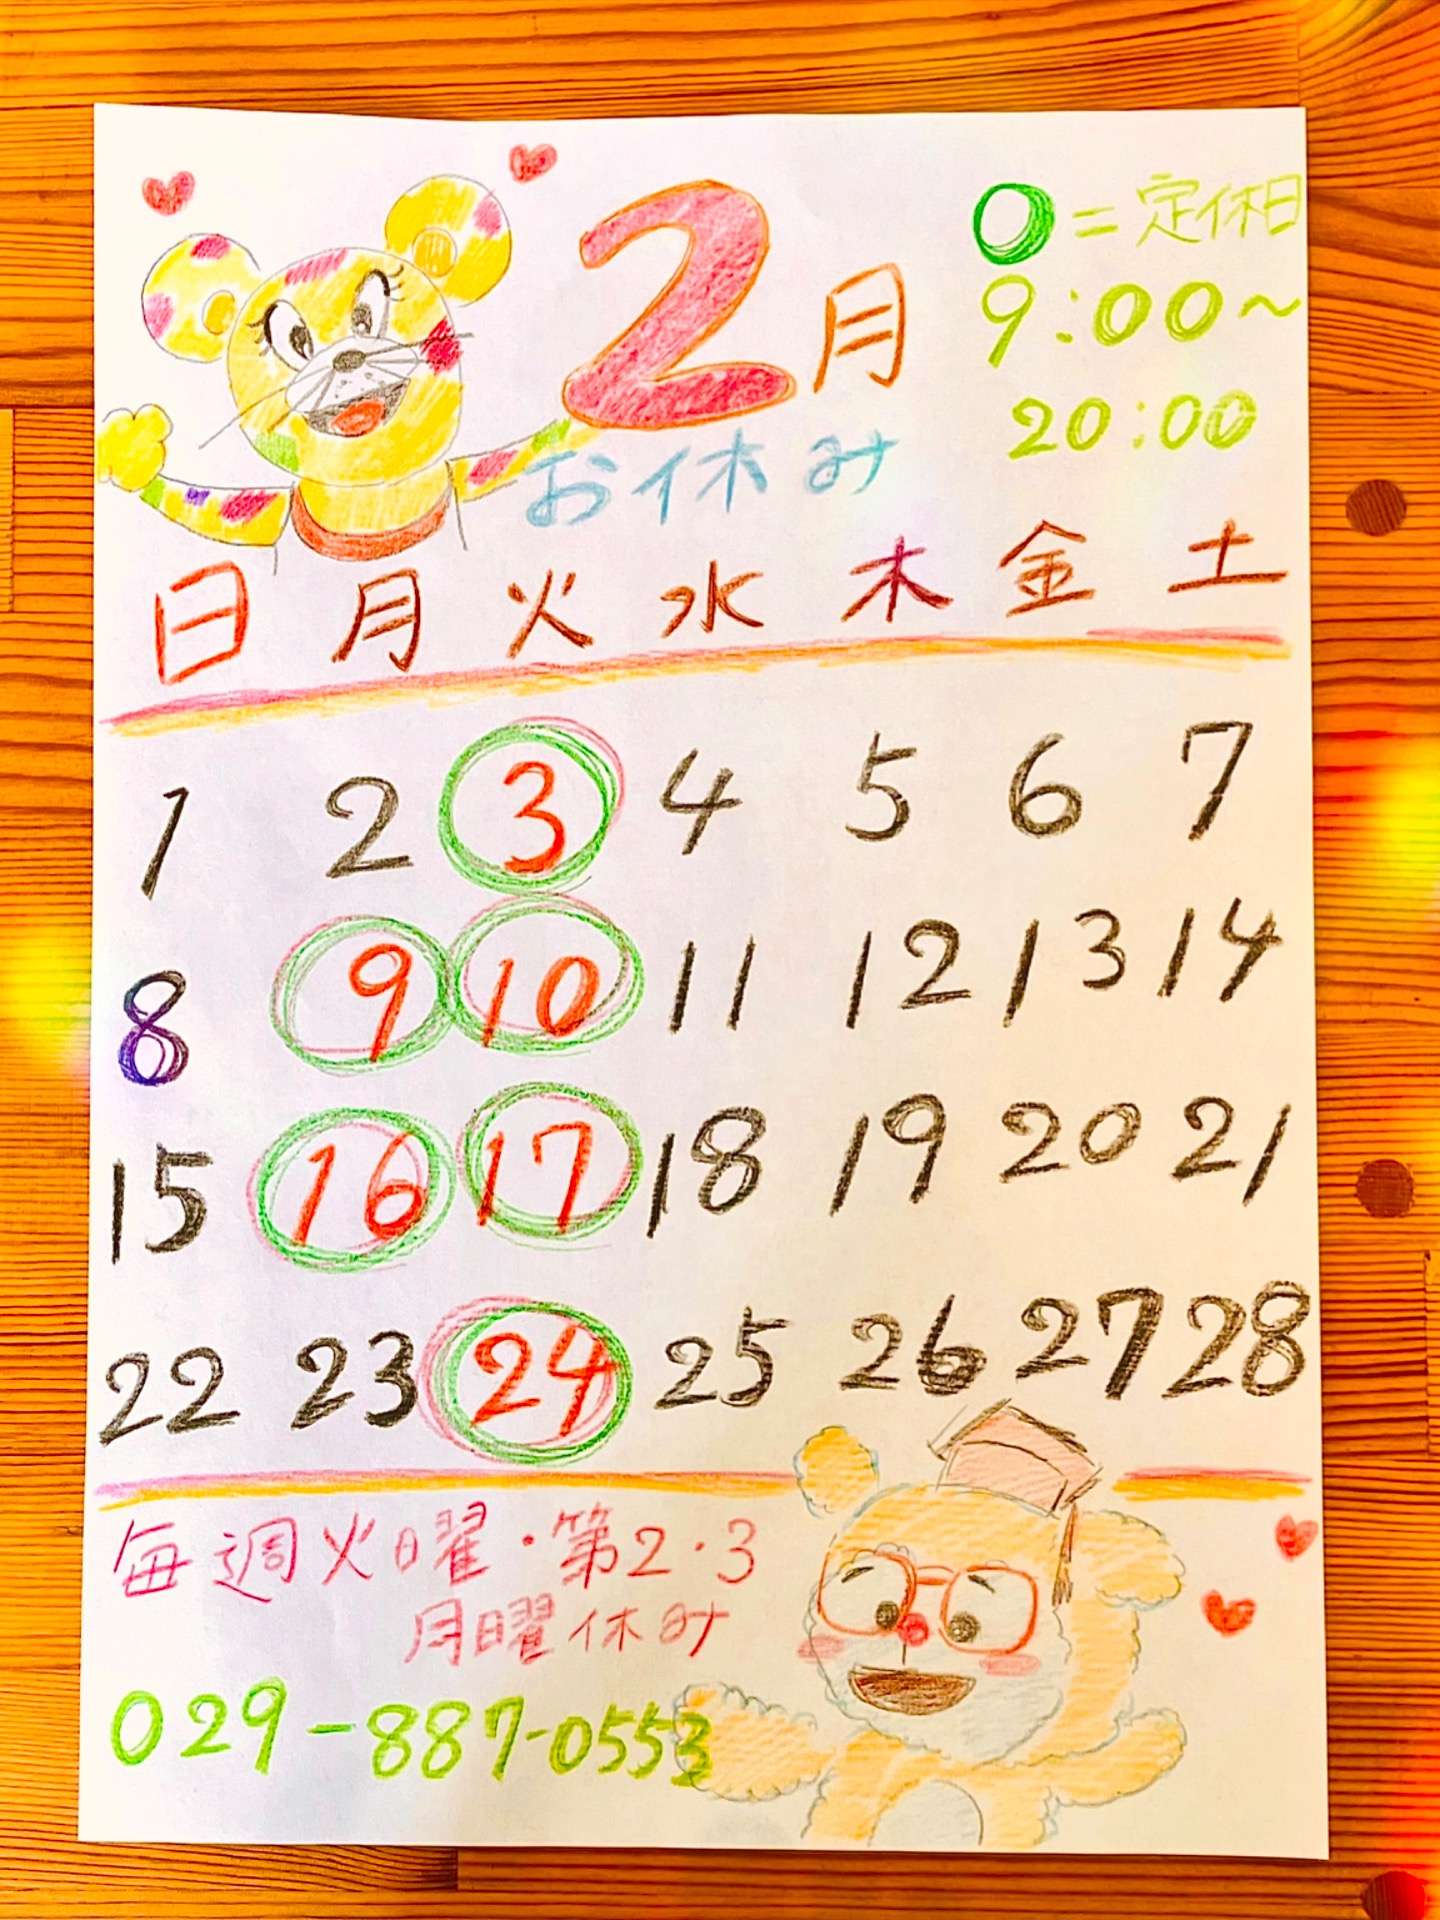 2月
お休み
○=定休日
9:00~
20:00
日 月 火 水 木 金 土
1 2 3 4 5 6 7
8 9 10 11 12 13 14
15 16 17 18 19 20 21
22 23 24 25 26 27 28
毎週火曜・第2・3
月曜休み
029-887-0553